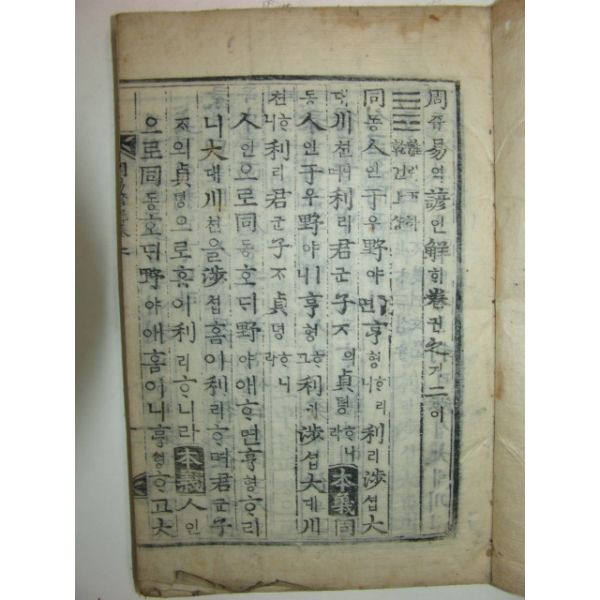 周쥬易역諺언解ᄒᆡ卷권之지二이
離리下하
乾건上샹
同동人인于우野야면亨형ᄒᆞ리니利리涉섭大
대川쳔며利리君군子ᄌᆞ의貞뎡ᄒᆞ니라本義同
동人인于우野야ㅣ니亨형ᄒᆞ고利리涉섭大대川
쳔ᄒᆞ니利리君군子ᄌᆞ貞뎡ᄒᆞ니라
人인으로同동호ᄃᆡ野야애ᄒᆞ면亨형ᄒᆞ리
니大대川쳔을涉섭홈이利리ᄒᆞ며君군子
ᄌᆞ의貞뎡으로홈이利리ᄒᆞ니라本義人인
으로同동호ᄃᆡ野야애홈이니亨형ᄒᆞ고大